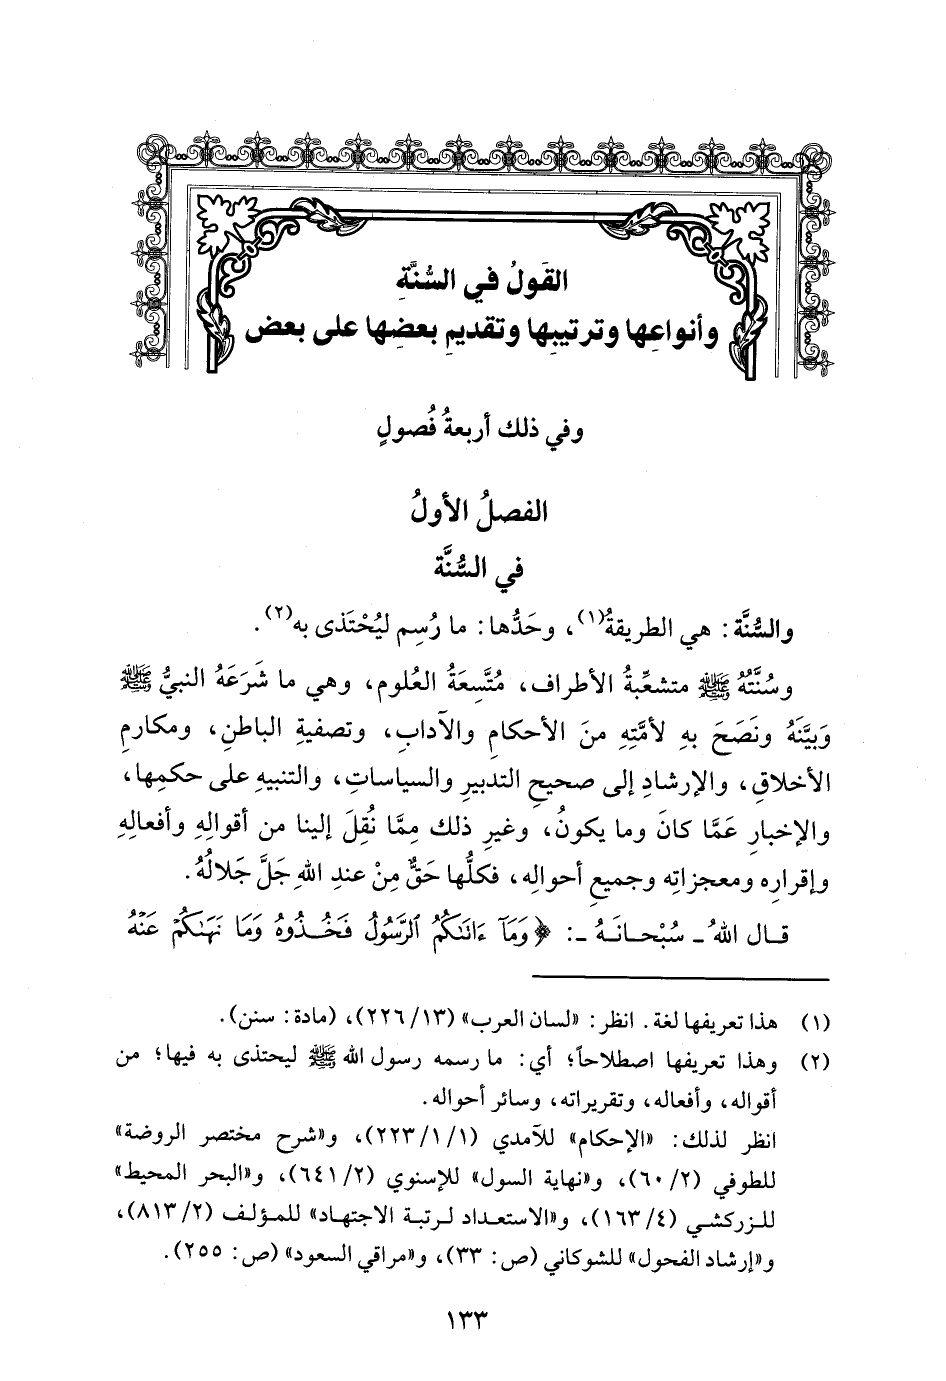 القَولُ في السُّنَّةِ
وأنواعِها وترتيبِها وتقديمِ بعضِها على بعض
وفي ذلك أربعةُ فُصولٍ
الفصلُ الأولُ
في السُّنَّة
والسُّنَّة: هي الطريقةُ(١)، وحَدُّها: ما رُسِم ليُحْتَذى به(٢).
وسُنَّتُهُ ﷺ متشعِّبةُ الأطراف، مُتَّسِعَةُ العُلوم، وهي ما شَرَعَهُ النبيُّ ﷺ
وَبيَّنَهُ ونَصَحَ بهِ لأمَّتِهِ منَ الأحكامِ والآدابِ، وتصفيةِ الباطنِ، ومكارمِ
الأخلاقِ، والإرشادِ إلى صحيحِ التدبيرِ والسياساتِ، والتنبيهِ على حكمِها،
والإخبارِ عَمَّا كانَ وما يكونُ، وغيرِ ذلك مِمَّا نُقِلَ إلينا من أقوالِهِ وأفعالِهِ
وإقرارِه ومعجزاتِه وجميعِ أحوالِه، فكلُّها حَقٌّ مِنْ عندِ اللهِ جَلَّ جَلالُهُ.
قال اللهُ ـ سُبْحانَهُ ـ: ﴿وَمَآ ءَاتَىٰكُمُ ٱلرَّسُولُ فَخُذُوهُ وَمَا نَهَىٰكُمْ عَنْهُ
(١) هذا تعريفها لغة. انظر: «لسان العرب» (١٣/ ٢٢٦)، (مادة: سنن).
(٢) وهذا تعريفها اصطلاحاً؛ أي: ما رسمه رسول الله ﷺ ليحتذى به فيها؛ من
أقواله، وأفعاله، وتقريراته، وسائر أحواله.
انظر لذلك: «الإحكام» للآمدي (١/ ١/ ٢٢٣)، و«شرح مختصر الروضة»
للطوفي (٢/ ٦٠)، و«نهاية السول» للإسنوي (٢/ ٦٤١)، و«البحر المحيط»
للزركشي (٤/ ١٦٣)، و«الاستعداد لرتبة الاجتهاد» للمؤلف (٢/ ٨١٣)،
و«إرشاد الفحول» للشوكاني (ص: ٣٣)، و«مراقي السعود» (ص: ٢٥٥).
١٣٣